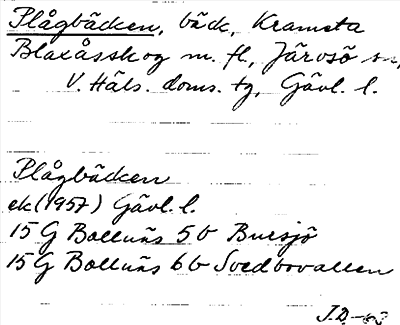 Plågbäcken, bäck, Kramsta
Blaxåsskog m. fl, Järvsö sn,
V. Häls. doms. tg, Gävl. l.
Plågbäcken
ek (1957) Gävl. l.
15 G Bollnäs 5 b Bursjö
15 G Bollnäs 6 b Svedbovallen
J.D. -63